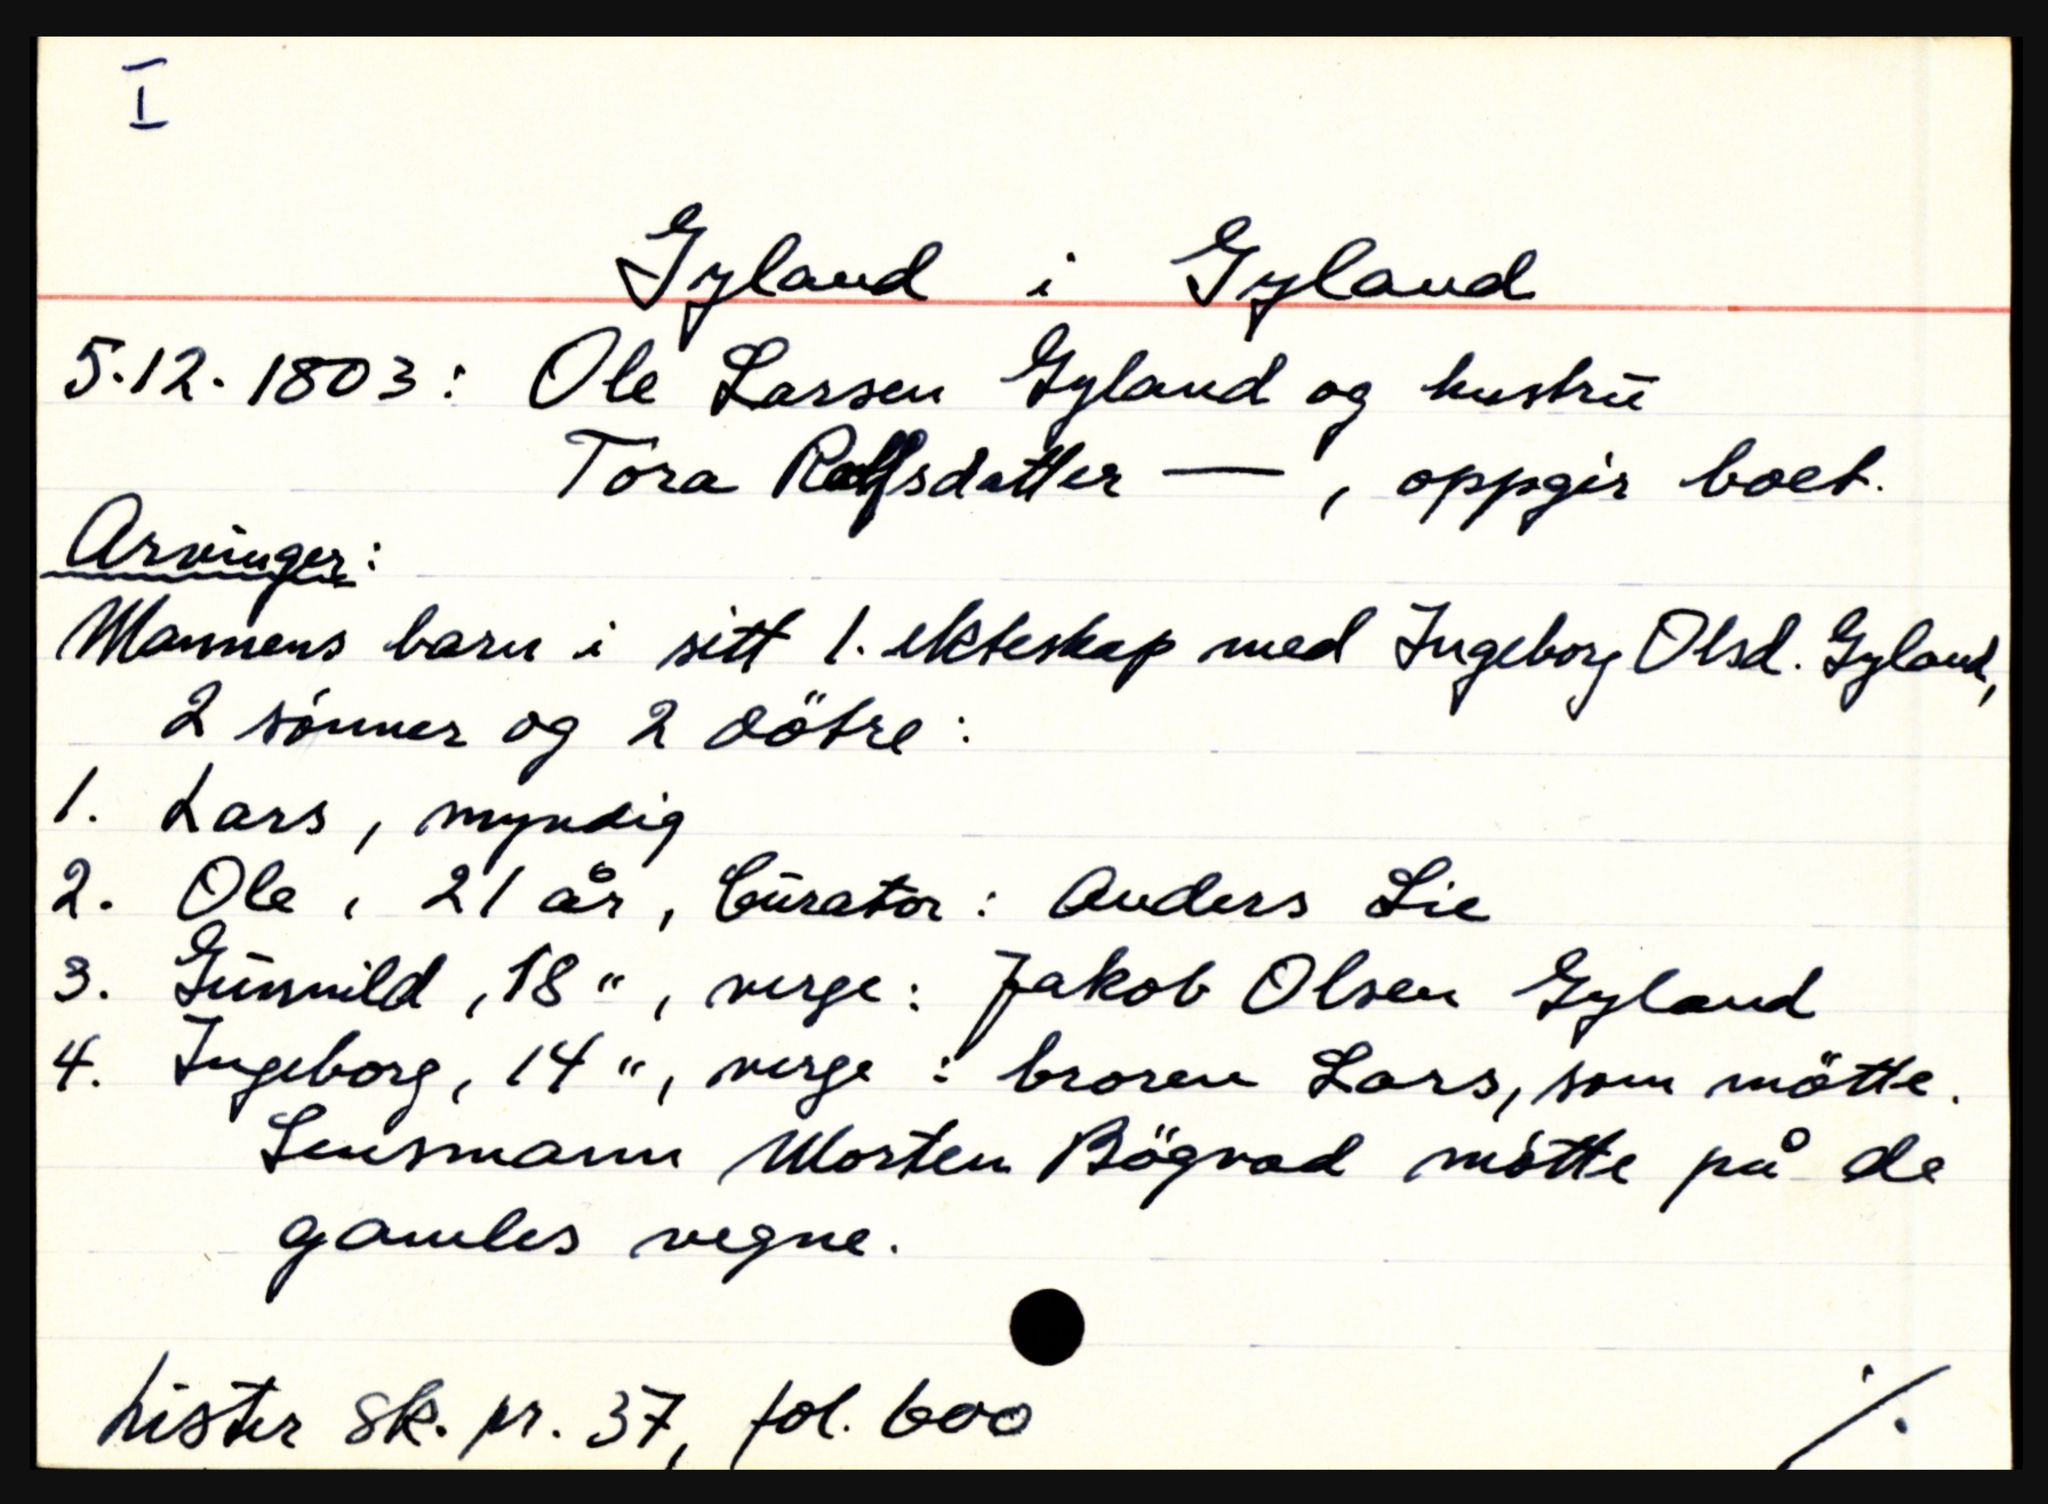 I
Gyland i Gyland
5.12.1803: Ole Larsen Gyland og hustrū
Tora Rolfsdatter —, oppgir boet.
Arvinger:
Mannens barn i sitt 1. ekteskap med Ingeborg Olsd. Gyland,
2 sönner og 2 dötre:
1. Lars, myndig
2. Ole, 21 år, Cūrator: Anders Lie
3. Gūnvild, 18 ", verge: Jakob Olsen Gyland
4. Ingeborg, 14 ", verge: broren Lars, som mötte.
Lensmann Morten Bögvad mötte på de
gamles vegne.
Lister sk. pr. 37, fol. 600
./.